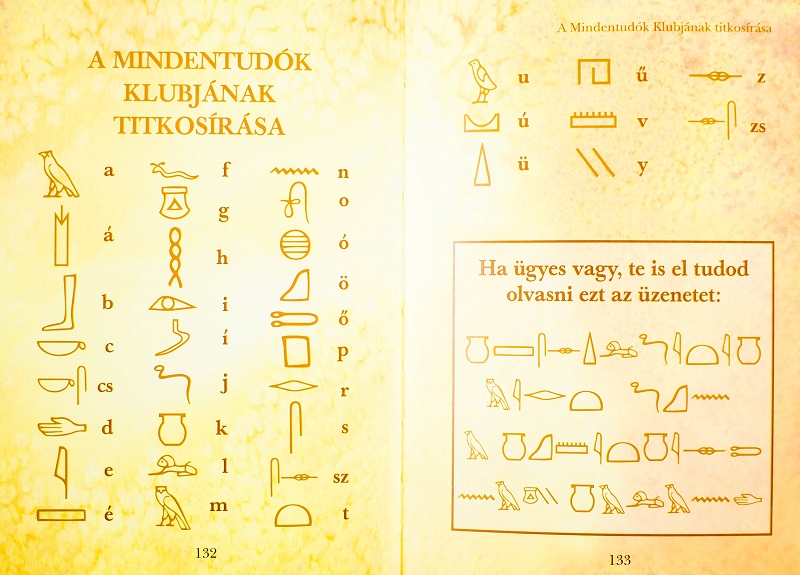 A MINDENTUDÓK
KLUBJÁNAK
TITKOSÍRÁSA
a
á
b
c
cs
d
e
é
f
g
h
i
í
j
k
l
m
n
o
ó
ö
ő
p
r
s
sz
t
132
A Mindentudók Klubjának titkosírása
u
ú
ü
ű
v
y
z
zs
Ha ügyes vagy, te is el tudod
olvasni ezt az üzenetet:
133